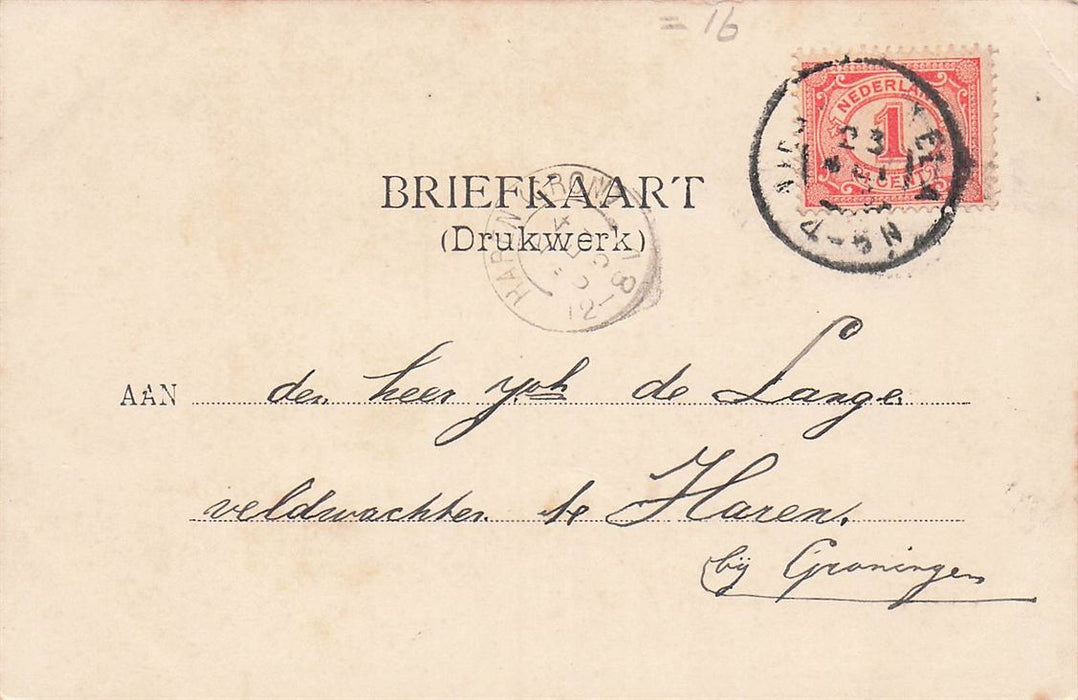 = 16
NEDERLAND
1
CENT
23
BRIEFKAART
(Drukwerk)
12-8
AAN den heer Joh de Lange
veldwachter te Haren.
bij Groningen